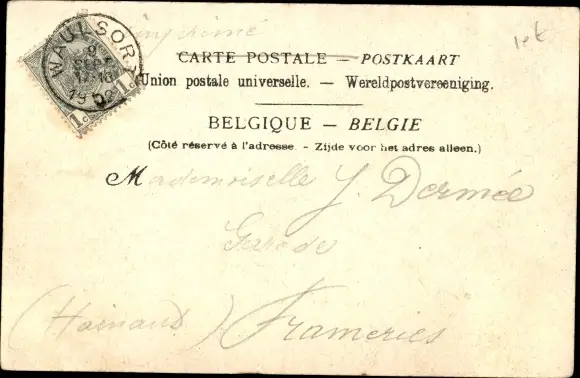 imprimé
WAULSORT
9
17-18
1c 1c
CARTE POSTALE — POSTKAART
Union postale universelle. — Wereldpostvereeniging.
BELGIQUE — BELGIE
(Côté réservé à l'adresse. - Zijde voor het adres alleen.)
Mademoiselle J. Dermée
Gare de
(Hainaut) Frameries